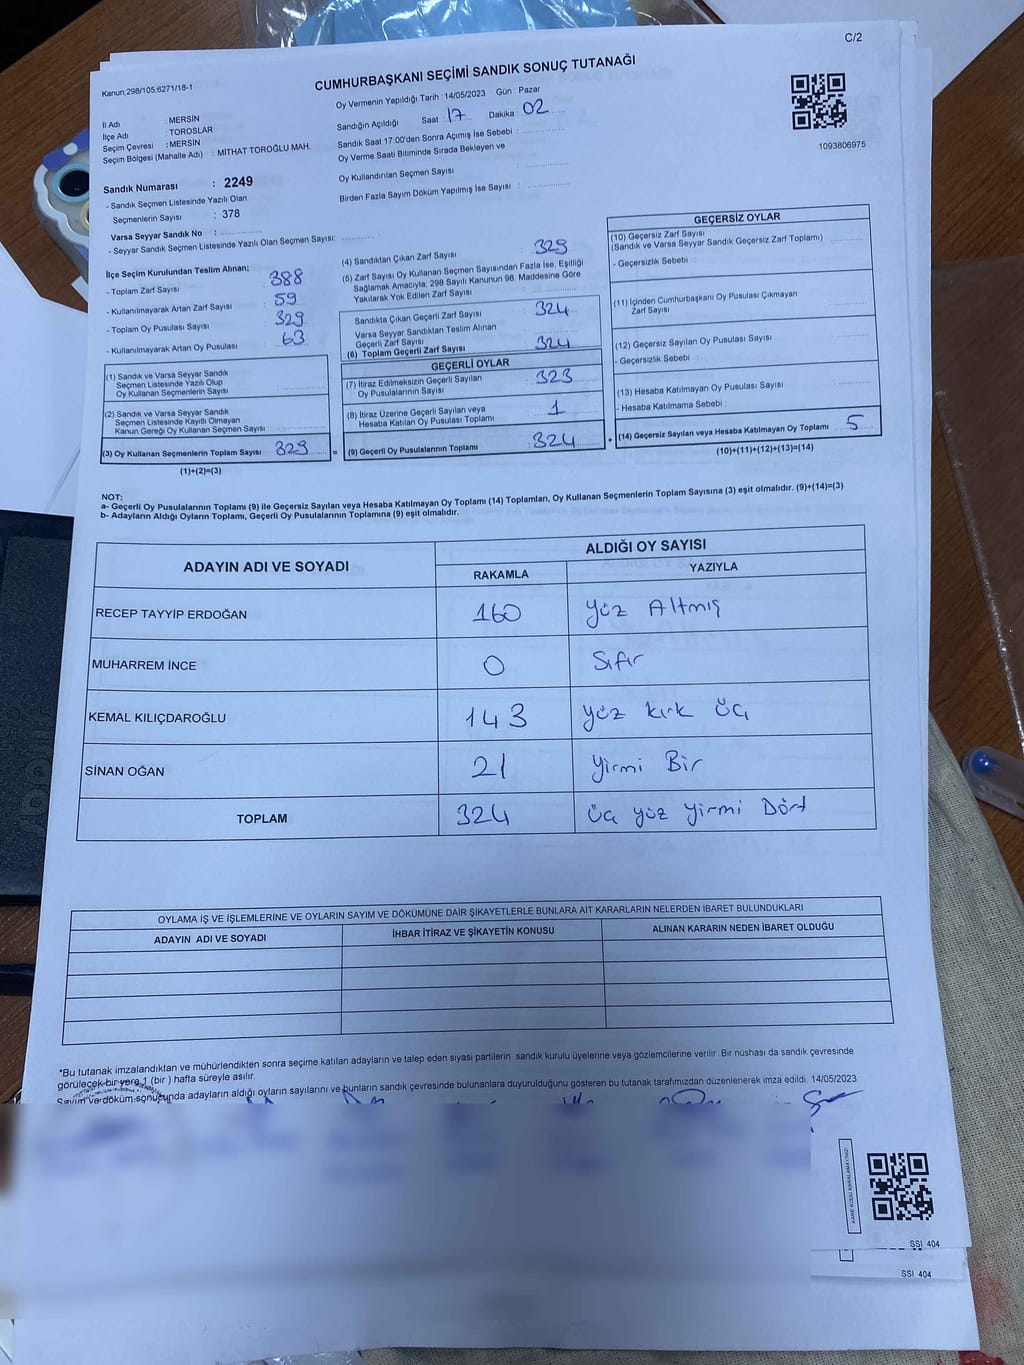 C/2
Kanun:298/105;6271/18-1
CUMHURBAŞKANI SEÇİMİ SANDIK SONUÇ TUTANAĞI
İl Adı : MERSİN
İlçe Adı : TOROSLAR
Seçim Çevresi : MERSİN
Seçim Bölgesi (Mahalle Adı) : MİTHAT TOROĞLU MAH.
Oy Vermenin Yapıldığı Tarih : 14/05/2023 Gün : Pazar
Sandığın Açıldığı Saat : 17 Dakika : 02
Sandık Saat 17.00'den Sonra Açımış İse Sebebi :
Oy Verme Saati Bitiminde Sırada Bekleyen ve
Oy Kullandırılan Seçmen Sayısı :
Birden Fazla Sayım Döküm Yapılmış İse Sayısı :
1093806975
Sandık Numarası : 2249
- Sandık Seçmen Listesinde Yazılı Olan
Seçmenlerin Sayısı : 378
Varsa Seyyar Sandık No :
- Seyyar Sandık Seçmen Listesinde Yazılı Olan Seçmen Sayısı:
İlçe Seçim Kurulundan Teslim Alınan;
- Toplam Zarf Sayısı 388
- Kullanılmayarak Artan Zarf Sayısı 59
- Toplam Oy Pusulası Sayısı 329
- Kullanılmayarak Artan Oy Pusulası 63
(1) Sandık ve Varsa Seyyar Sandık
Seçmen Listesinde Yazılı Olup
Oy Kullanan Seçmenlerin Sayısı
(2) Sandık ve Varsa Seyyar Sandık
Seçmen Listesinde Kayıtlı Olmayan
Kanun Gereği Oy Kullanan Seçmen Sayısı
(3) Oy Kullanan Seçmenlerin Toplam Sayısı 329
(1)+(2)=(3)
(4) Sandıktan Çıkan Zarf Sayısı 329
(5) Zarf Sayısı Oy Kullanan Seçmen Sayısından Fazla İse, Eşitliği
Sağlamak Amacıyla, 298 Sayılı Kanunun 98. Maddesine Göre
Yakılarak Yok Edilen Zarf Sayısı
Sandıkta Çıkan Geçerli Zarf Sayısı 324
Varsa Seyyar Sandıktan Teslim Alınan
Geçerli Zarf Sayısı
(6) Toplam Geçerli Zarf Sayısı 324
GEÇERLİ OYLAR
(7) İtiraz Edilmeksizin Geçerli Sayılan
Oy Pusulalarının Sayısı 323
(8) İtiraz Üzerine Geçerli Sayılan veya
Hesaba Katılan Oy Pusulası Toplamı 1
= (9) Geçerli Oy Pusulalarının Toplamı 324
GEÇERSİZ OYLAR
(10) Geçersiz Zarf Sayısı
(Sandık ve Varsa Seyyar Sandık Geçersiz Zarf Toplamı)
- Geçersizlik Sebebi :
(11) İçinden Cumhurbaşkanı Oy Pusulası Çıkmayan
Zarf Sayısı
(12) Geçersiz Sayılan Oy Pusulası Sayısı
- Geçersizlik Sebebi :
(13) Hesaba Katılmayan Oy Pusulası Sayısı
- Hesaba Katılmama Sebebi :
+ (14) Geçersiz Sayılan veya Hesaba Katılmayan Oy Toplamı 5
(10)+(11)+(12)+(13)=(14)
NOT:
a- Geçerli Oy Pusulalarının Toplamı (9) ile Geçersiz Sayılan veya Hesaba Katılmayan Oy Toplamı (14) Toplamları, Oy Kullanan Seçmenlerin Toplam Sayısına (3) eşit olmalıdır. (9)+(14)=(3)
b- Adayların Aldığı Oyların Toplamı, Geçerli Oy Pusulalarının Toplamına (9) eşit olmalıdır.
ADAYIN ADI VE SOYADI ALDIĞI OY SAYISI
RAKAMLA YAZIYLA
RECEP TAYYİP ERDOĞAN 160 yüz Altmış
MUHARREM İNCE 0 Sıfır
KEMAL KILIÇDAROĞLU 143 yüz kırk üç
SİNAN OĞAN 21 yirmi Bir
TOPLAM 324 üç yüz yirmi Dört
OYLAMA İŞ VE İŞLEMLERİNE VE OYLARIN SAYIM VE DÖKÜMÜNE DAİR ŞİKAYETLERLE BUNLARA AİT KARARLARIN NELERDEN İBARET BULUNDUKLARI
ADAYIN ADI VE SOYADI İHBAR İTİRAZ VE ŞİKAYETİN KONUSU ALINAN KARARIN NEDEN İBARET OLDUĞU
*Bu tutanak imzalandıktan ve mühürlendikten sonra seçime katılan adayların ve talep eden siyasi partilerin sandık kurulu üyelerine veya gözlemcilerine verilir. Bir nüshası da sandık çevresinde
görülecek bir yere 1 (bir ) hafta süreyle asılır.
Sayım ve döküm sonucunda adayların aldığı oyların sayılarını ve bunların sandık çevresinde bulunanlara duyurulduğunu gösteren bu tutanak tarafımızdan düzenlenerek imza edildi. 14/05/2023
KARE KODU KARALAMAYINIZ!
SSİ 404
SSİ 404